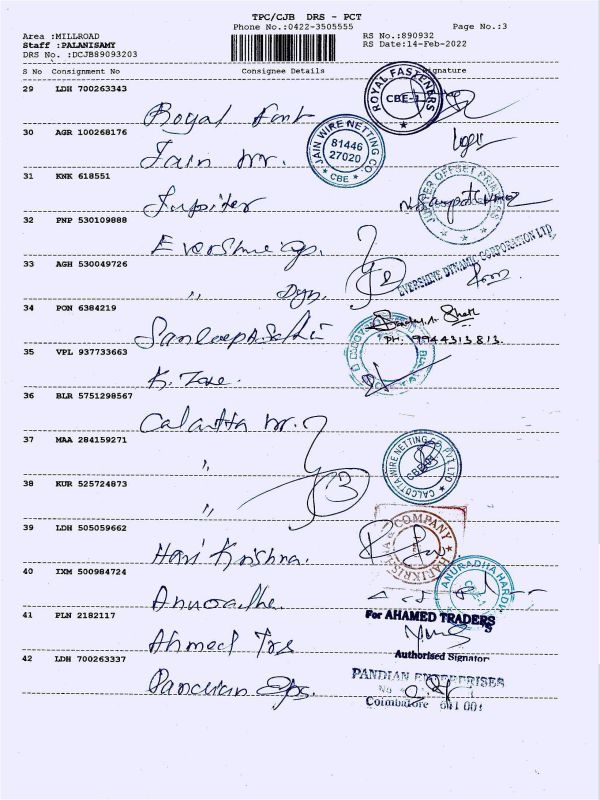 TPC/CJB DRS - PCT
Phone No.:0422-3505555
Page No.:3
Area :MILLROAD
RS No.:890932
Staff :PALANISAMY
RS Date:14-Feb-2022
DRS No. :DCJB89093203
S No Consignment No Consignee Details Signature
29 LDH 700263343
ROYAL FASTENERS
CBE-1
Royal Fant
30 AGR 100268176
JAIN WIRE NETTING CO.
81446
27020
CBE
Jain Wr.
31 KNK 618551
JUPITER OFFSET PRINTERS
Jupiter
32 PNP 530109888
Evershine Cp.
EVERSHINE DYNAMIC CORPORATION LTD
33 AGH 530049726
" Dyn.
34 PON 6384219
Sandeep A Shah
Ph. 9944313813.
35 VPL 937733663
K. Zone.
36 BLR 5751298567
Calcutta Wr.
37 MAA 284159271
"
CALCOTTA WIRE NETTING CO. PVT LTD
38 KUR 525724873
"
39 LDH 505059662
COMPANY
HARIKRISHNA
Hari Krishna.
40 IXM 500984724
ANURADHA HARDW
Anuradha
41 PLN 2182117
For AHAMED TRADERS
Ahmed Trs
Authorised Signator
42 LDH 700263337
PANDIAN ENTERPRISES
Pandian Eps.
Coimbatore 641 001